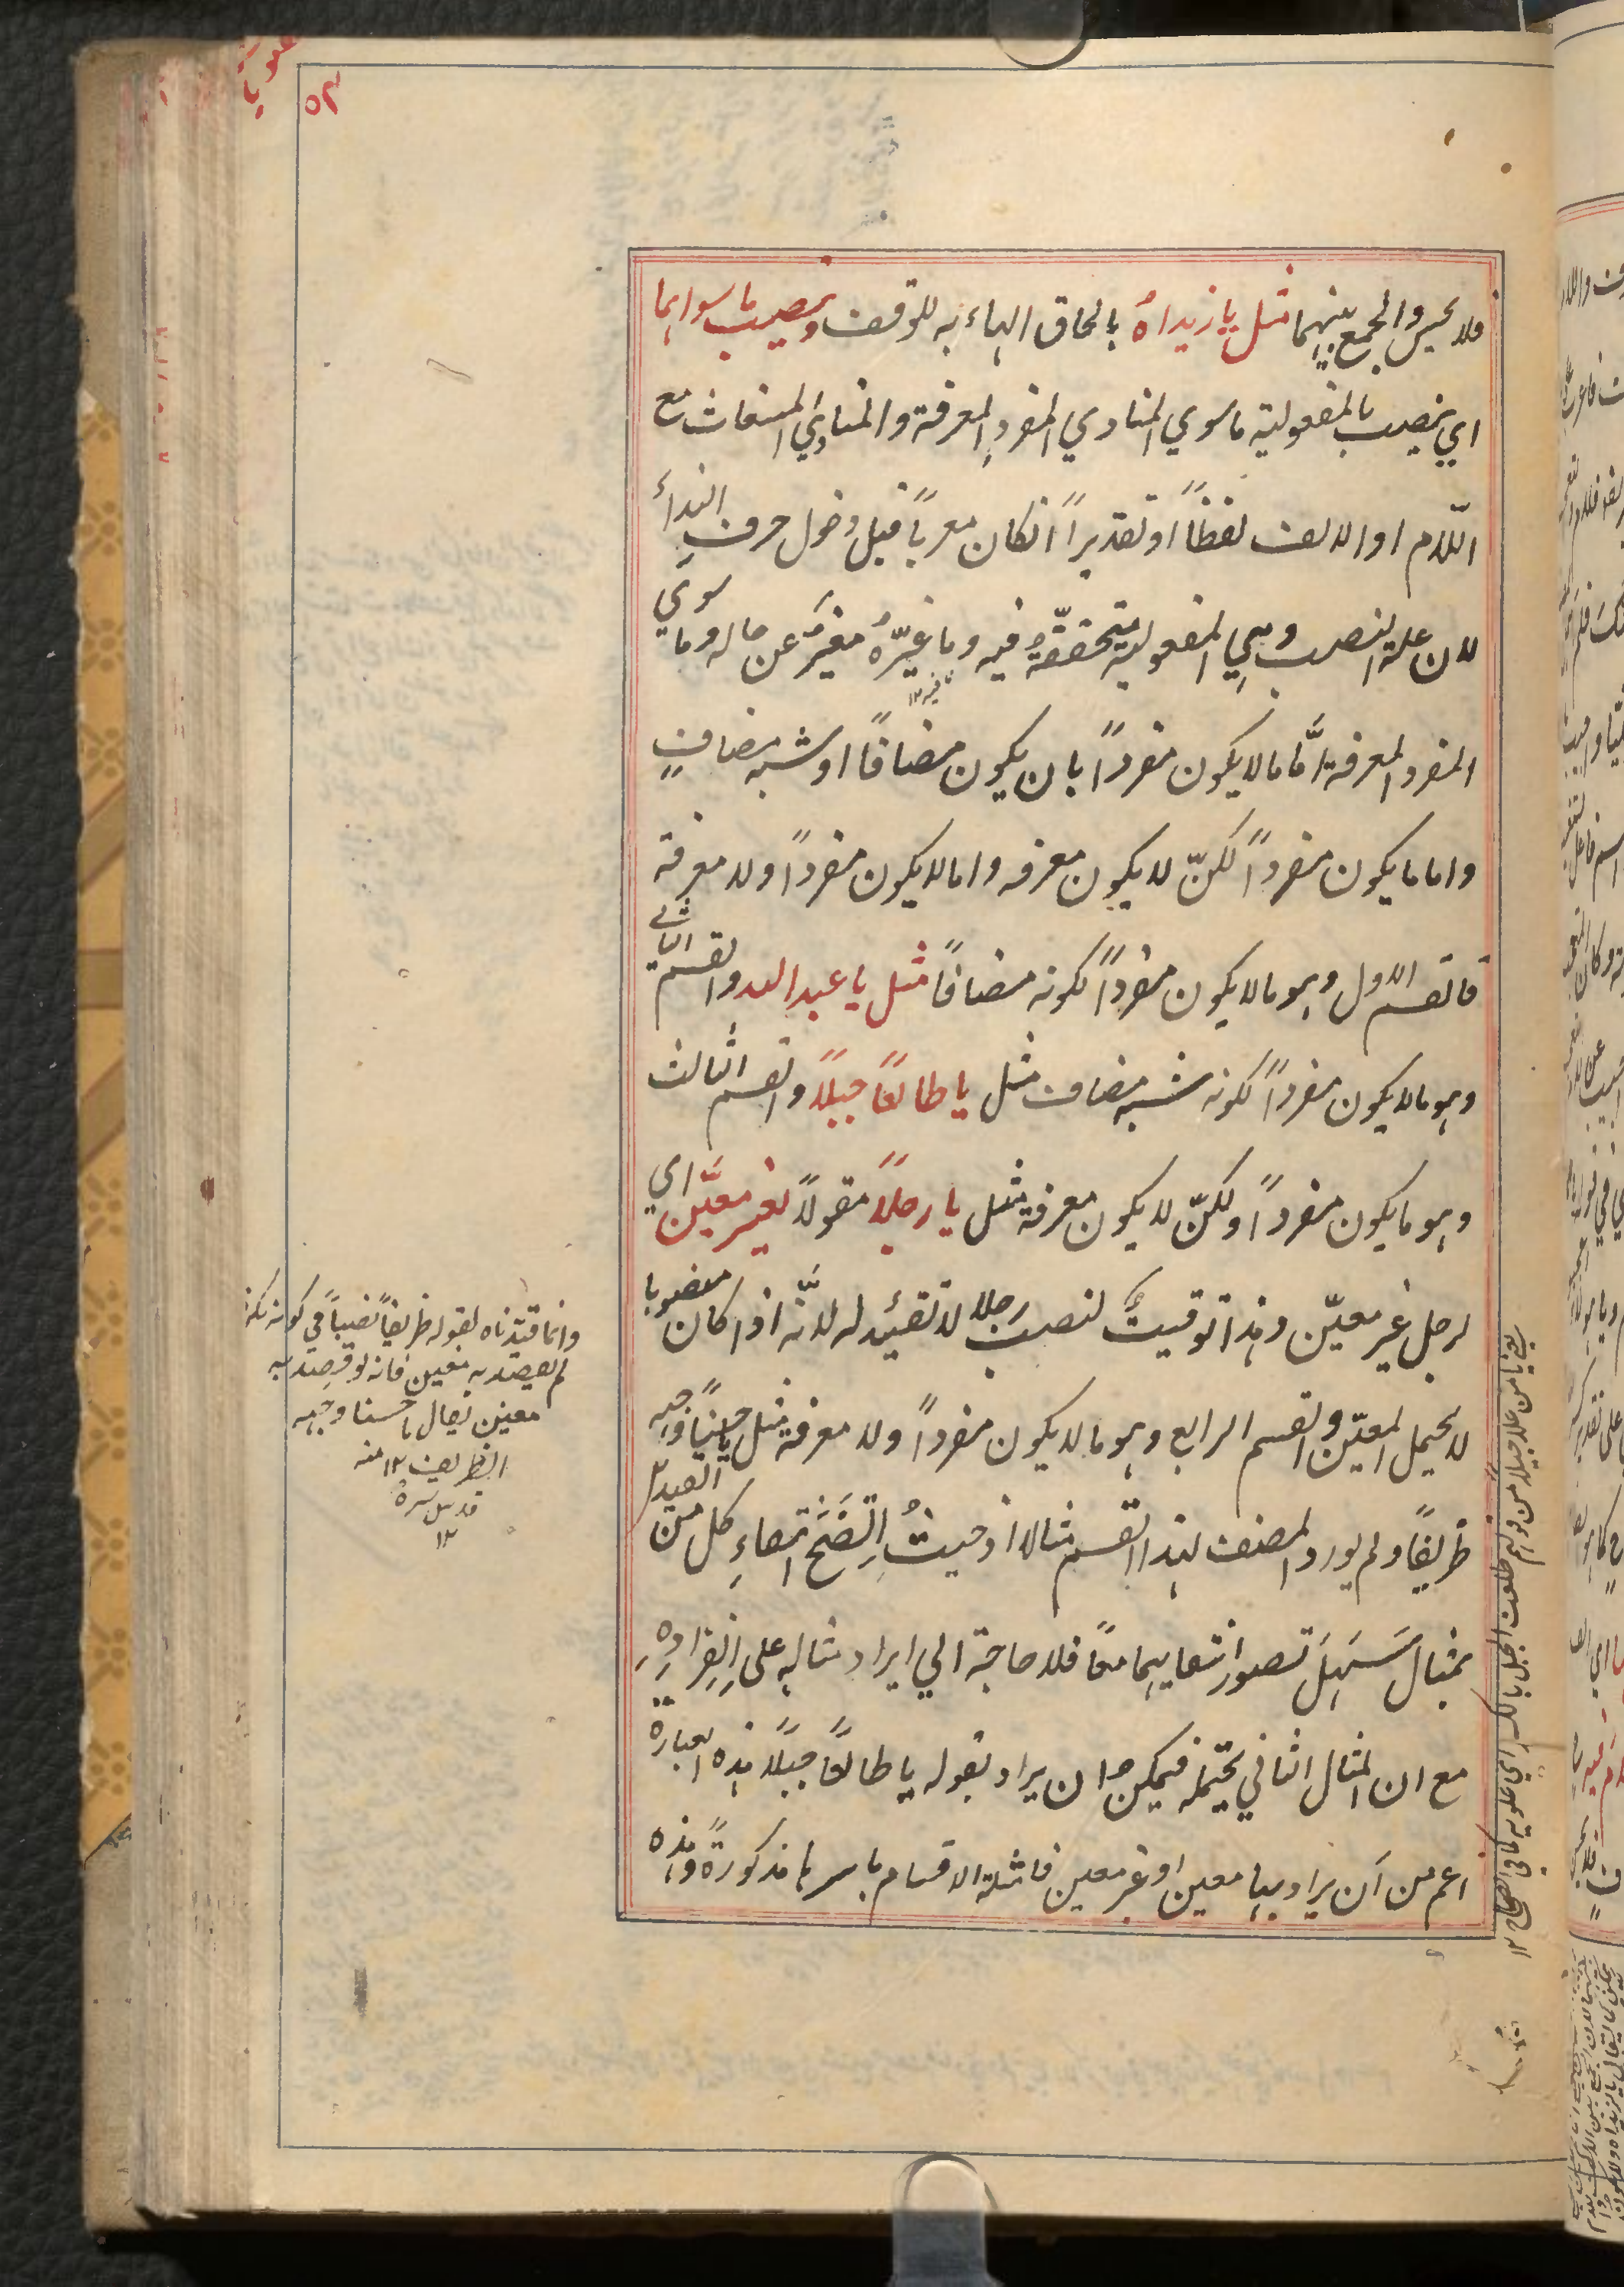 ٥٢
فلا يحسن الجمع بينهما مثل يا زيداهُ بالحاق الهاء به للوقف وينصب ما سواهما
اي ينصب بالمفعولية ما سوي المنادي المفرد المعرفة والمنادي المستغاث مع
اللّام او الالف لفظاً او تقديراً انكان معرباً قبل دخول حرف النداء
لان علة النصب وهي المفعولية متحققّة فيه وما غيّرهُ مغيّر عن حاله وما سوي
المفرد المعرفة امّا ما لا يكون مفرداً بان يكون مضافاً او شبه مضافٍ
واما ما يكون مفرداً لكنّ لا يكون معرفه واما لا يكون مفرداً ولا معرفة
فالقسم الاول وهو ما لا يكون مفرداً لكونه مضافاً مثل يا عبد الله والقسم الثاني
وهو ما لا يكون مفرداً لكونه شبه مضاف مثل يا طالعاً جبلاً والقسم الثالث
وهو ما يكون مفرداً ولكنّ لا يكون معرفة مثل يا رجلاً مقولاً لغير معيَّن اي
لرجل غير معيّن وهذا توقيتٌ لنصب رجلا لا تقئيد له لانّه اذا كان منصوبا
لا يحمل المعيّن والقسم الرابع وهو ما لا يكون مفرداً ولا معرفة مثل يا حسناً وجهه
ظريفاً ولم يورد المصنف لهذا القسم مثالا اذ حيثُ اِتّضَحَ انتفاءِ كل من القيدين
بمثال سَهِلَ تصور انتفايهما معاً فلا حاجة الي ايراد مثالهِ على اِنِفِرادِهِ
مع ان المثال الثاني يحتمله فيمكن ح ان يراد بقوله يا طالعاً جبلاً هذه العبارة
اعم من اَن يراد بها معين او غير معين فامثلة الاقسام باسرها مذكورةً وهذه
وانما قيّدناه بقوله ظريفاً نصباً في كونه نكرة
لم يقصد به معين فانه لو قصد به
معين يقال يا حسنا وجهه
الظريف ١٢ منه
قدس سره
١٢